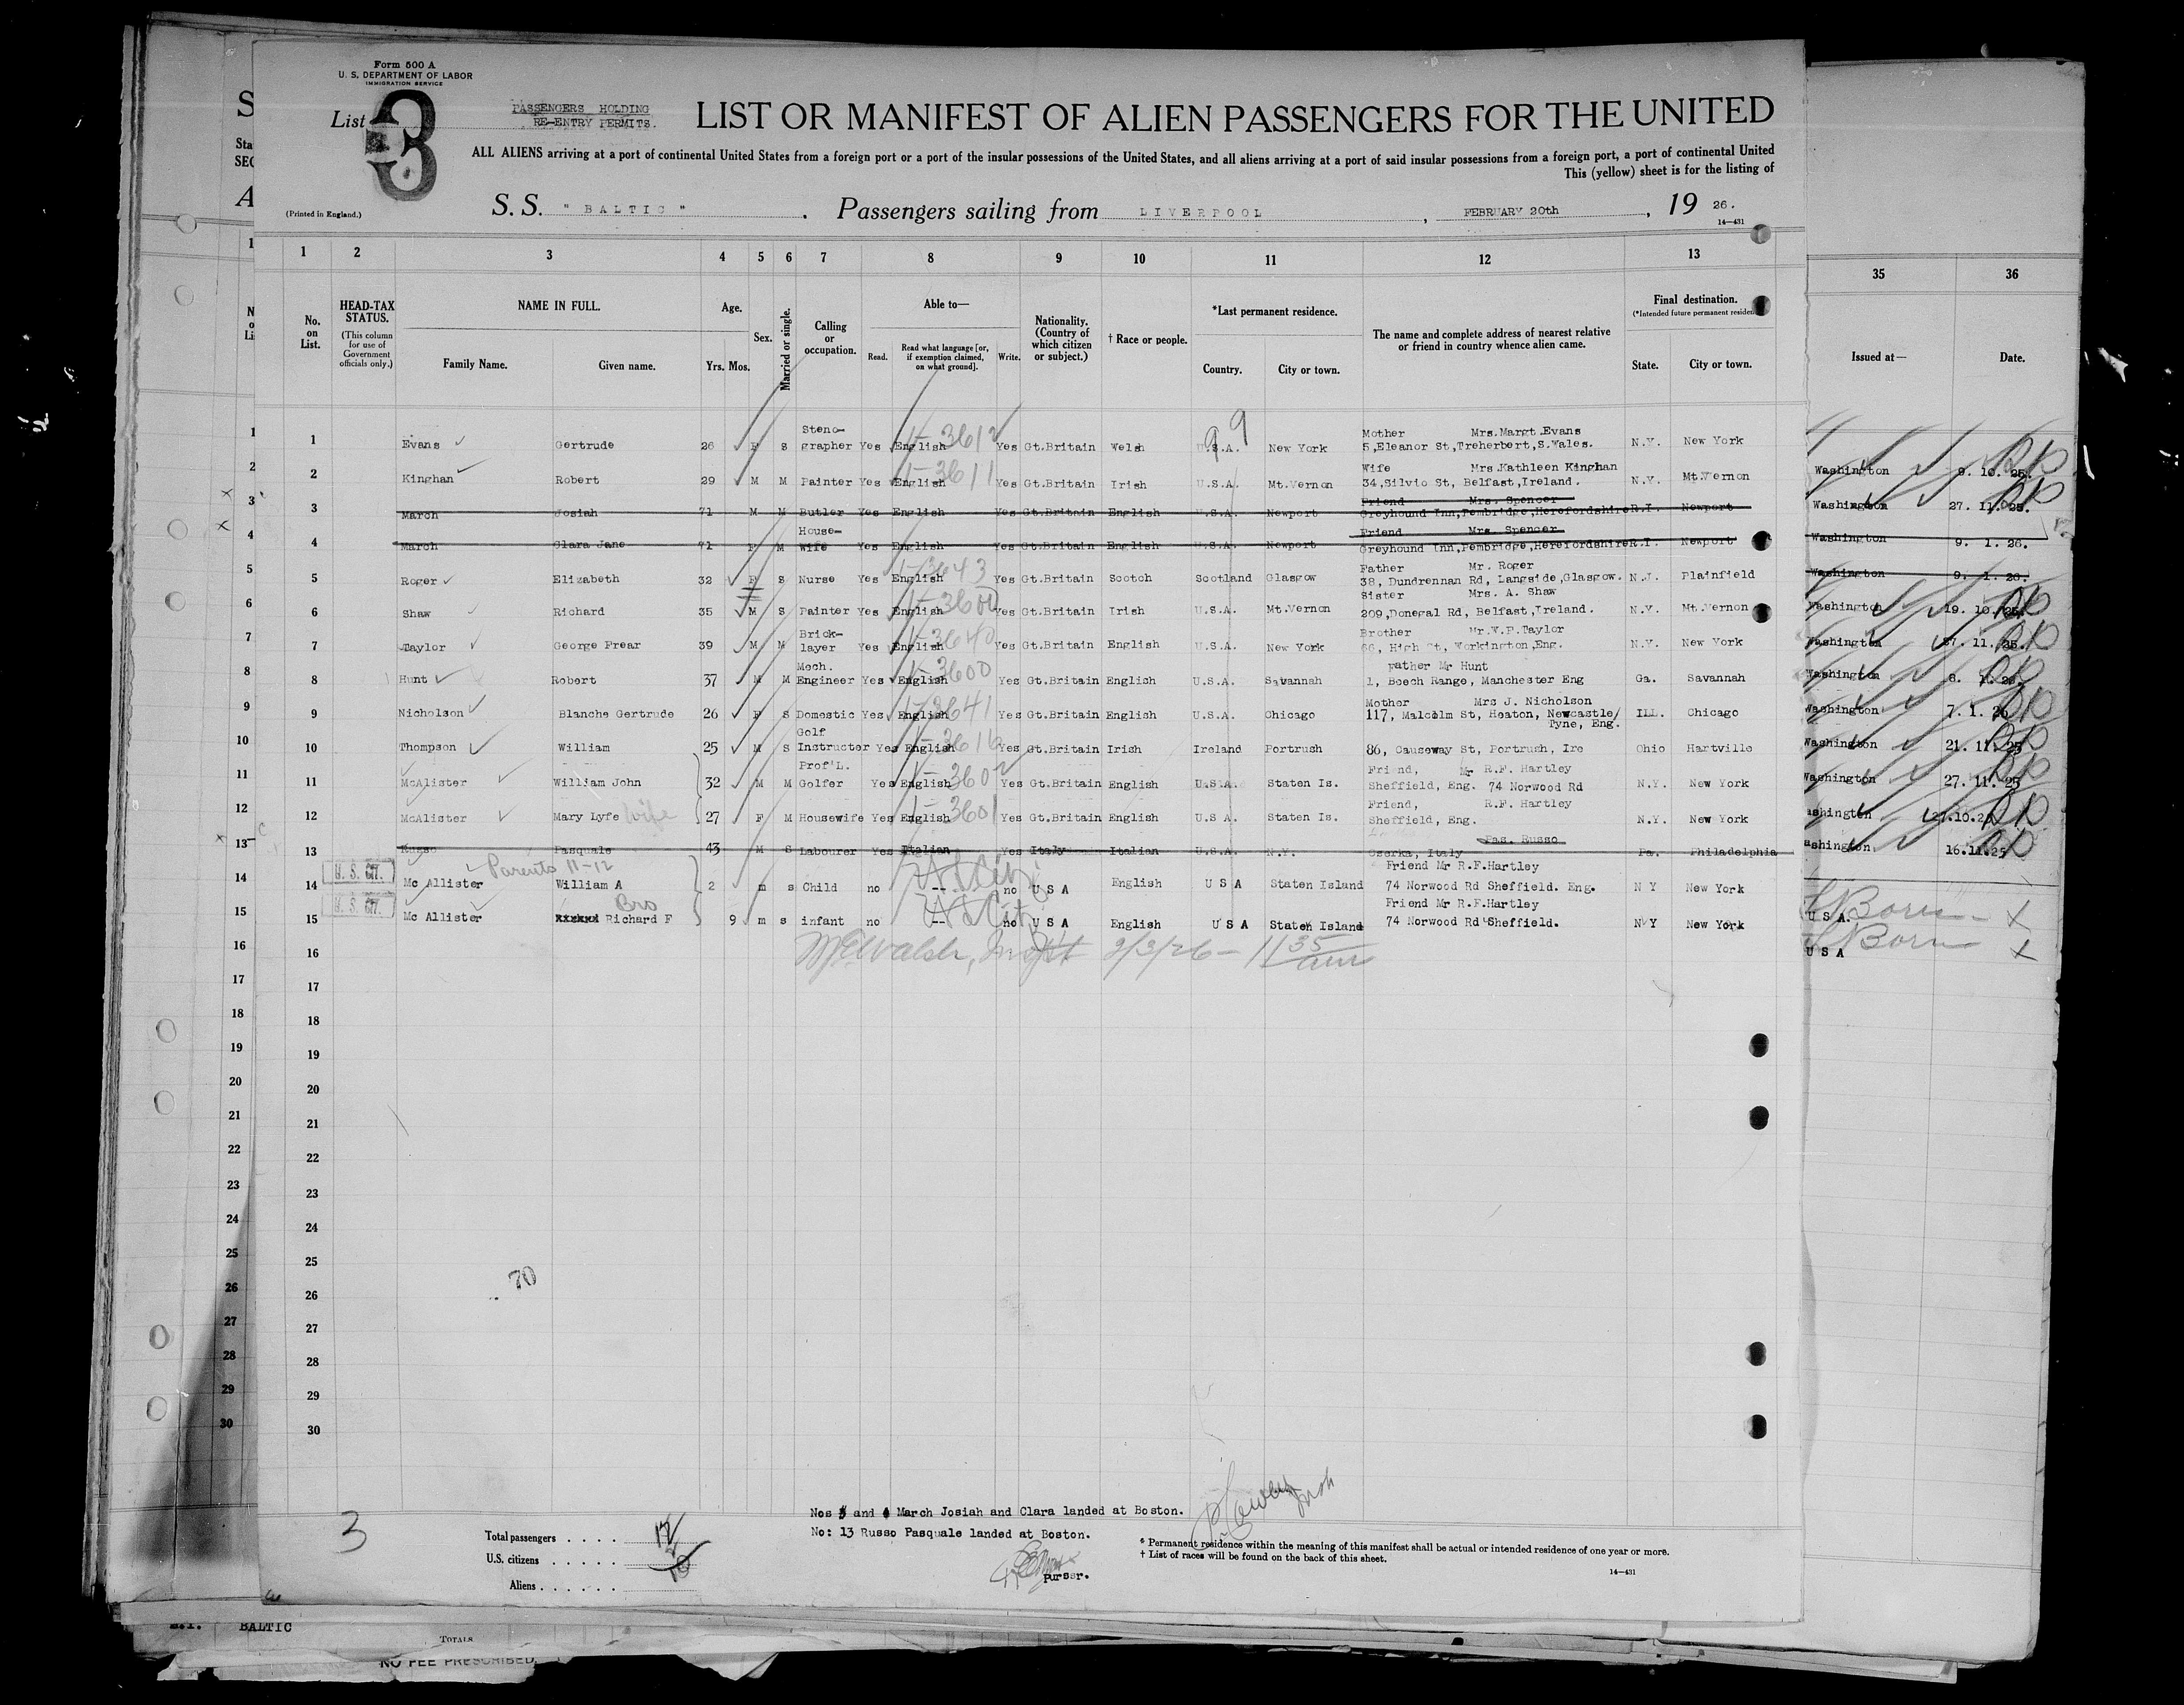 Form 500 A
U. S. DEPARTMENT OF LABOR
IMMIGRATION SERVICE
List 3
PASSENGERS HOLDING
RE-ENTRY PERMITS.
LIST OR MANIFEST OF ALIEN PASSENGERS FOR THE UNITED
ALL ALIENS arriving at a port of continental United States from a foreign port or a port of the insular possessions of the United States, and all aliens arriving at a port of said insular possessions from a foreign port, a port of continental United
This (yellow) sheet is for the listing of
(Printed in England.)
S. S. "BALTIC". Passengers sailing from LIVERPOOL, FEBRUARY 20th, 19 26.
14-431
1 2 3 4 5 6 7 8 9 10 11 12 13 35 36
No. on List.
HEAD-TAX STATUS.
(This column for use of Government officials only.)
NAME IN FULL.
Family Name. Given name.
Age.
Yrs. Mos.
Sex.
Married or single.
Calling or occupation.
Able to—
Read. Read what language [or, if exemption claimed, on what ground]. Write.
Nationality. (Country of which citizen or subject.)
† Race or people.
*Last permanent residence.
Country. City or town.
The name and complete address of nearest relative or friend in country whence alien came.
Final destination.
(*Intended future permanent residen
State. City or town.
Issued at— Date.
1 Evans Gertrude 26 F S Steno-grapher Yes English 1-3612 Yes Gt.Britain Welsh U.S.A. New York Mother Mrs.Margt.Evans 5,Eleanor St,Treherbert,S.Wales. N.Y. New York
2 Kinghan Robert 29 M M Painter Yes English 1-3611 Yes Gt.Britain Irish U.S.A. Mt.Vernon Wife Mrs.Kathleen Kinghan 34,Silvio St, Belfast,Ireland. N.Y. Mt.Vernon Washington 9. 10. 25.
3 March Josiah 71 M M Butler Yes English Yes Gt.Britain English U.S.A. Newport Friend Mrs. Spencer Greyhound Inn,Pembridge,Herefordshire R.I. Newport Washington 27. 11. 25.
4 March Clara Jane 71 F M House-wife Yes English Yes Gt.Britain English U.S.A. Newport Friend Mrs. Spencer Greyhound Inn,Pembridge,Herefordshire R.I. Newport Washington 9. 1. 26.
5 Roger Elizabeth 32 F S Nurse Yes English 1-3643 Yes Gt.Britain Scotch Scotland Glasgow Father Mr. Roger 38, Dundrennan Rd, Langside,Glasgow. N.J. Plainfield Washington 9. 1. 26.
6 Shaw Richard 35 M S Painter Yes English Yes Gt.Britain Irish U.S.A. Mt.Vernon Sister Mrs. A. Shaw 209,Donegal Rd, Belfast,Ireland. N.Y. Mt.Vernon Washington 19. 10. 25.
7 Taylor George Prear 39 M M Brick-layer Yes English 1-3640 Yes Gt.Britain English U.S.A. New York Brother Mr.W.P.Taylor High St, Workington,Eng. N.Y. New York Washington 27. 11. 25.
8 Hunt Robert 37 M M Mech. Engineer Yes English 1-3600 Yes Gt.Britain English U.S.A. Savannah Father Mr Hunt 1, Beech Range, Manchester Eng Ga. Savannah Washington 8. 1. 26.
9 Nicholson Blanche Gertrude 26 F S Domestic Yes English 1-3641 Yes Gt.Britain English U.S.A. Chicago Mother Mrs J. Nicholson 117, Malcolm St, Heaton, Newcastle/Tyne, Eng. ILL. Chicago Washington 7. 1. 26
10 Thompson William 25 M S Golf Instructor Yes English 1-3616 Yes Gt.Britain Irish Ireland Portrush 86, Causeway St, Portrush, Ire Ohio Hartville Washington 21. 11. 25
11 McAlister William John 32 M M Prof'L. Golfer Yes English 1-3602 Yes Gt.Britain English U.S.A. Staten Is. Friend, Mr R.F. Hartley Sheffield, Eng. 74 Norwood Rd N.Y. New York Washington 27. 11. 25
12 McAlister Mary Lyfe wife 27 F M Housewife Yes English 1-3601 Yes Gt.Britain English U.S.A. Staten Is. Friend, R.F. Hartley Sheffield, Eng. N.Y. New York ashington 27.10.25
13 Russo Pasquale 43 M S Labourer Yes Italian Yes Italy Italian U.S.A. N.Y. Pas. Russo Italy Pa. Philadelphia ashington 16.11.25
Parents 11-12
14 U. S. CIT. Mc Allister William A 2 m s Child no -- no U S A English U S A Staten Island Friend Mr R.F.Hartley 74 Norwood Rd Sheffield. Eng. N Y New York U S A. Born X
Bro
15 U. S. CIT. Mc Allister Richard F 9 m s infant no -- no U S A English U S A Staten Island Friend Mr R.F.Hartley 74 Norwood Rd Sheffield. N Y New York U S A Born X
16 Walsh, 2/3/26 – 11 35 am
17
18
19
20
21
22
23
24
25
26
27
28
29
30
70
Nos 3 and 4 March Josiah and Clara landed at Boston.
No: 13 Russo Pasquale landed at Boston.
Purser.
3
Total passengers . . . . 12
U.S. citizens . . . . . . 2
Aliens . . . . . . 10
* Permanent residence within the meaning of this manifest shall be actual or intended residence of one year or more.
† List of races will be found on the back of this sheet.
14-431
BALTIC
TOTALS
NO FEE PRESCRIBED.